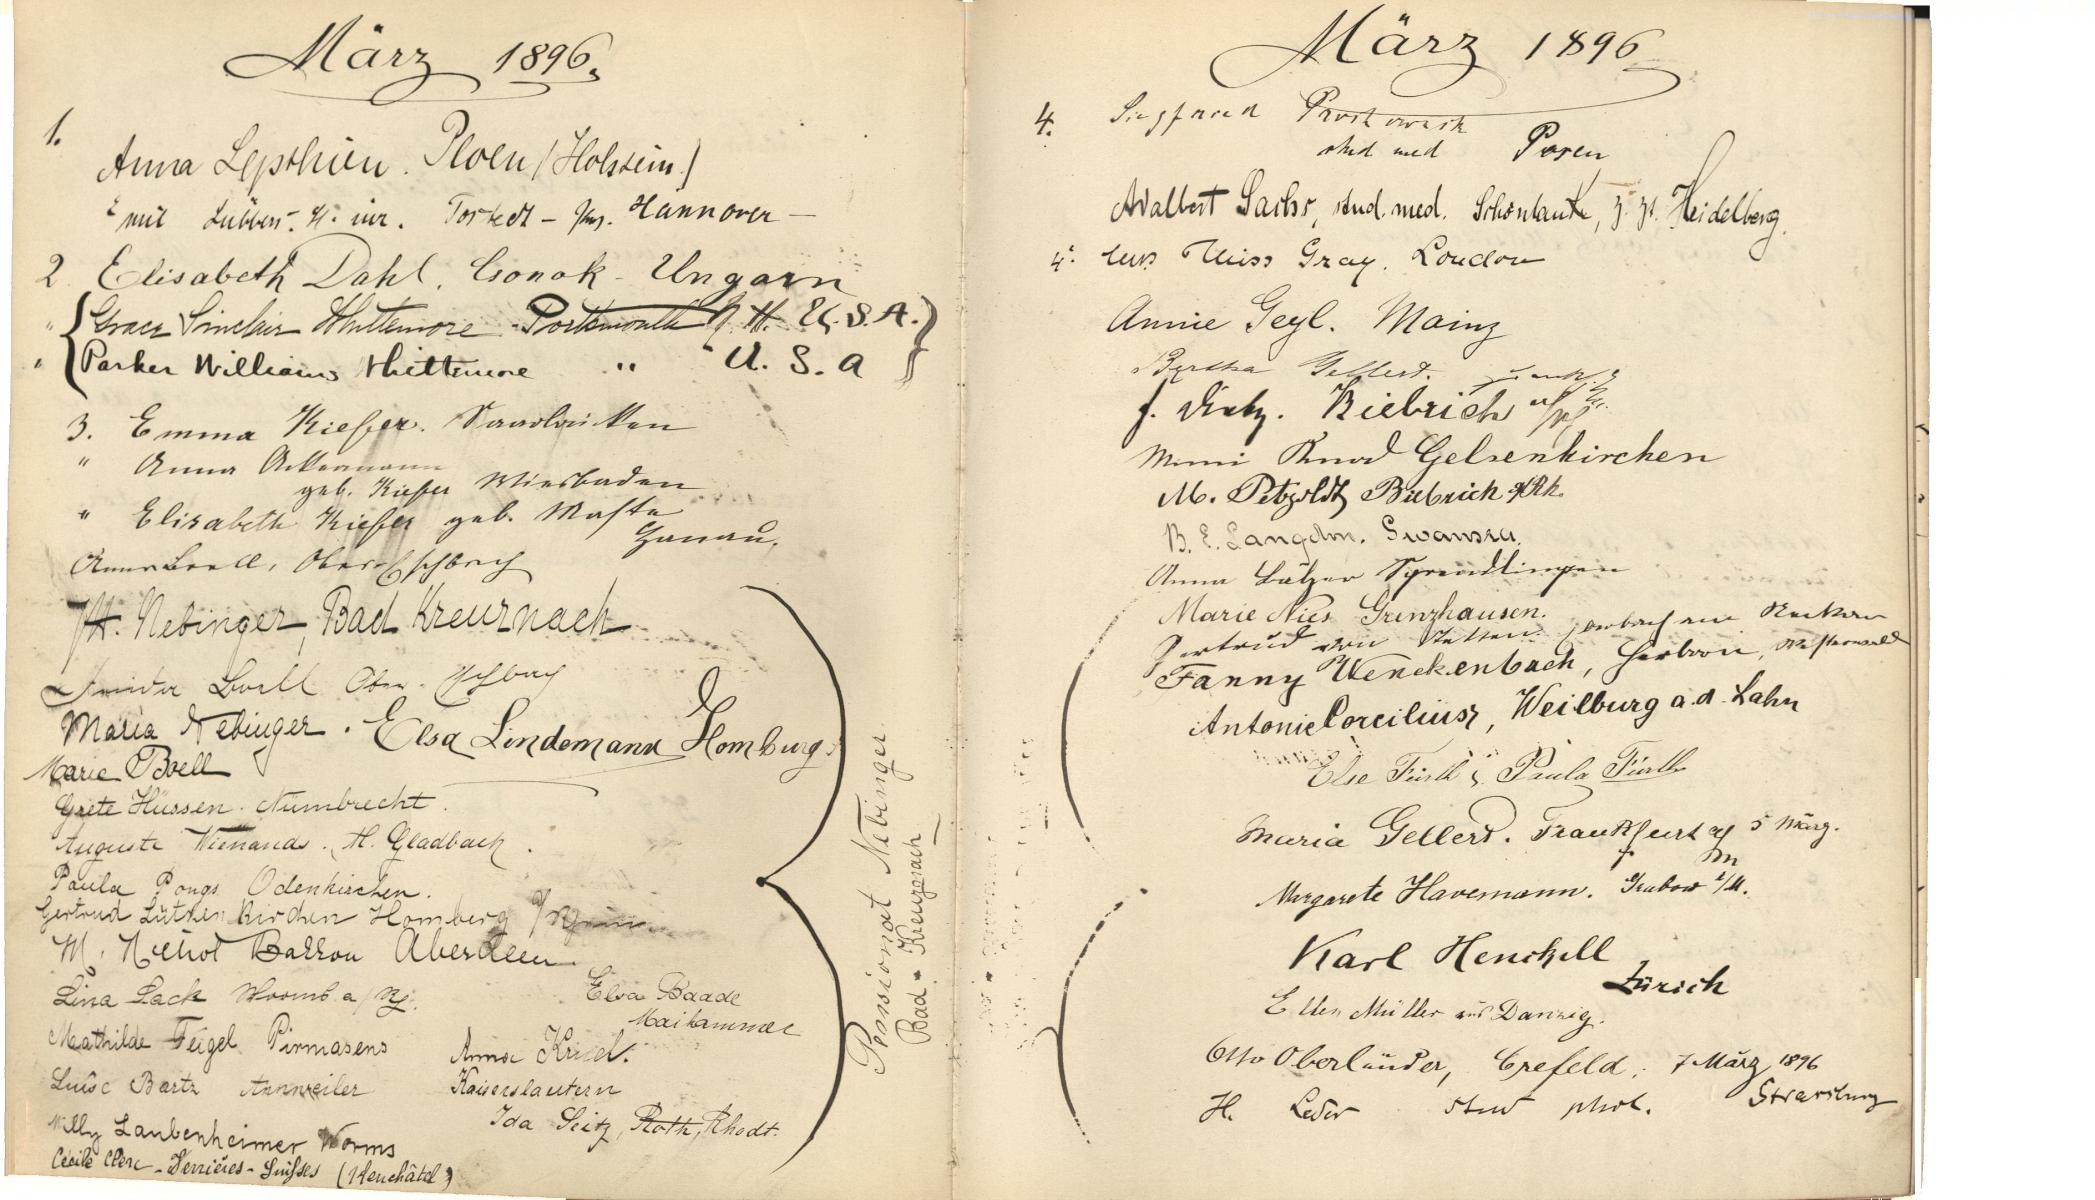 März 1896.
1.
Anna Lepthien. Ploen (Holstein.)
Emil Lübben. Hannover
2 Elisabeth Dahl. Csonok - Ungarn
" Grace Sinclair Whittemore - Portsmouth N. H. U. S. A.
" Parker Williams Whittemore " U. S. A
3. Emma Kiefer. Saarbrücken
" Anna Ackermann
geb. Kiefer Wiesbaden
" Elisabeth Kiefer geb.
Hanau.
Anna Boell, Ober-Eschbach
Nebinger, Bad Kreuznach
Boell Ober-Eschbach
Maria Nebinger. Elsa Lindemann Homburg
Marie Boell
Grete Hüssen. Nümbrecht.
Auguste Wienands. M. Gladbach.
Paula Pongs. Odenkirchen.
Gertrud Lütkenkirchen Homberg a/Rhein
M. Aberdeen.
Lina Lack Worms a/Rh.
Elsa Baade
Maikammer
Mathilde Feigel Pirmasens
Anna
Luise Bartz Annweiler
Kaiserslautern
Ida Seitz, Roth, Rhodt.
Willy Laubenheimer Worms
Cécile Clerc - Verrières-Suisses (Neuchâtel)
Pensionat Nebinger
Bad-Kreuznach
März 1896
4. Siegfried
stud med Posen
Adalbert Sachs, stud. med. Schönlanke, z. Zt. Heidelberg.
4. Miss Gray. London
Annie Geyl. Mainz
Bertha Gellert.
J. Biebrich
Mimi Knod Gelsenkirchen
M. Petzoldt Biebrich a/Rh.
B. E. Langdon. Swansea.
Anna Sprendlingen
Marie Nies Grenzhausen.
Gertrud von
Fanny Wenckenbach, Herborn, Westerwald
Antonie Corcilius, Weilburg a.d. Lahn
Else Fürth, Paula Fürth
Maria Gellert. Frankfurt a/M 5 März.
Margarete Havemann. Grabow i/M.
Karl Henckell
Zürich
Ellen Müller aus Danzig.
Otto Oberländer, Crefeld, 7 März 1896
H. Leder stud phil. Strassburg